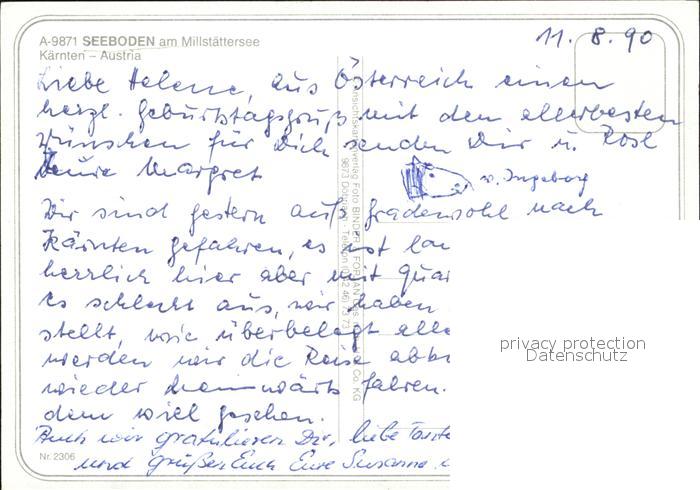 A-9871 SEEBODEN am Millstättersee
Kärnten – Austria
11. 8. 90
Liebe Helene, aus Österreich einen
herzl. Geburtstagsgruß mit den allerbesten
Wünschen für Dich senden Dir u. Rosl
Deine Margret
v. Ingeborg
Wir sind gestern aufs Gradewohl nach
Kärnten gefahren, es ist
herrlich hier aber mit Quar
es schlecht aus, wir haben
stellt, wie überbelegt alle
werden wir die Reise abb
wieder heimwärts fahren.
dem viel gesehen.
Auch wir gratulieren Dir, liebe Tante
und grüßen Euch Eure Susanne
Nr. 2306
privacy protection
Datenschutz